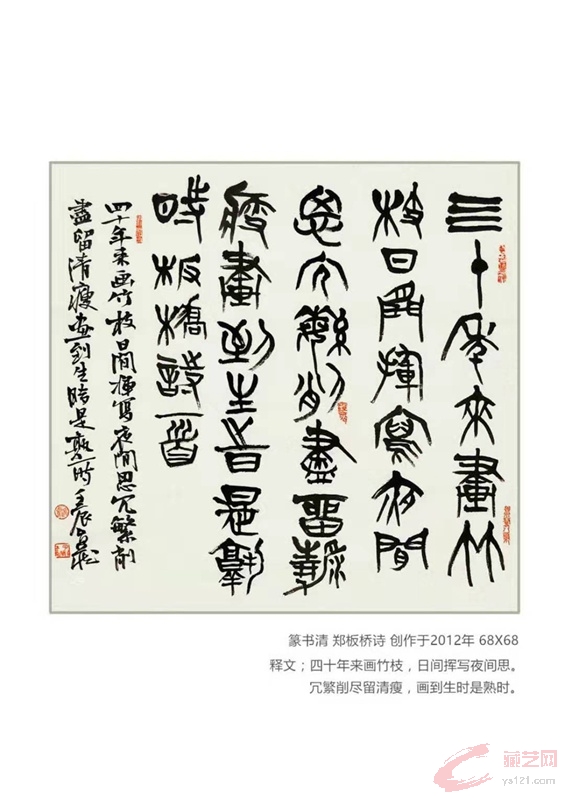 亖十年來畫竹
枝日間揮寫夜間
思冗繁削盡留清
瘦畫到生時是熟
時板橋詩一首
四十年来画竹枝日間揮寫夜間思冗繁削
盡留清瘦画到生時是熟時 壬辰
篆书清 郑板桥诗 创作于2012年 68X68
释文；四十年来画竹枝，日间挥写夜间思。
冗繁削尽留清瘦，画到生时是熟时。
藏艺网
ys121.com